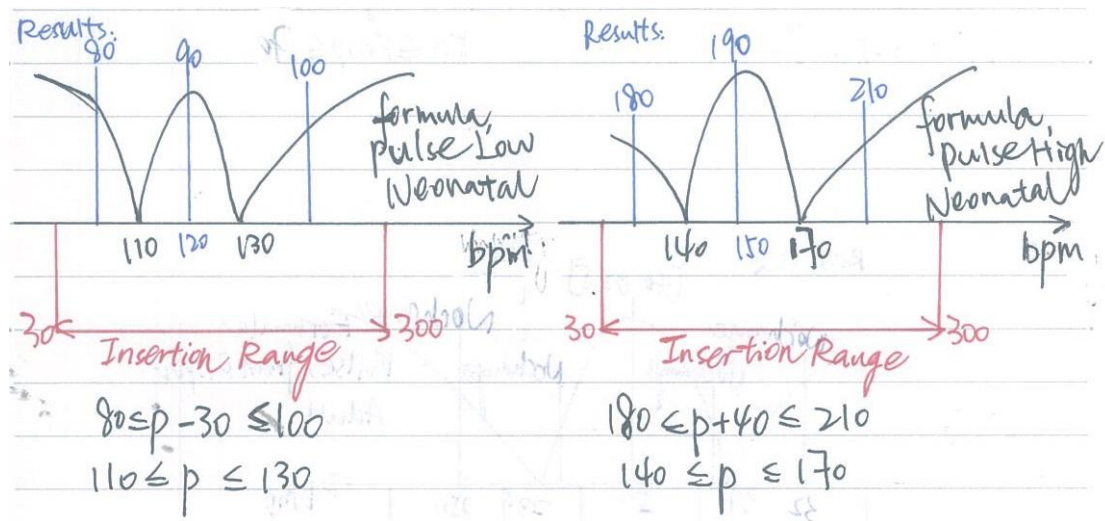 Results:
80
90
100
formula,
pulse Low
Neonatal
110
120
130
bpm
30
300
Insertion Range
80≤p-30≤100
110≤p≤130
Results:
180
190
210
formula,
pulse High
Neonatal
140
150
170
bpm
30
300
Insertion Range
180≤p+40≤210
140≤p≤170